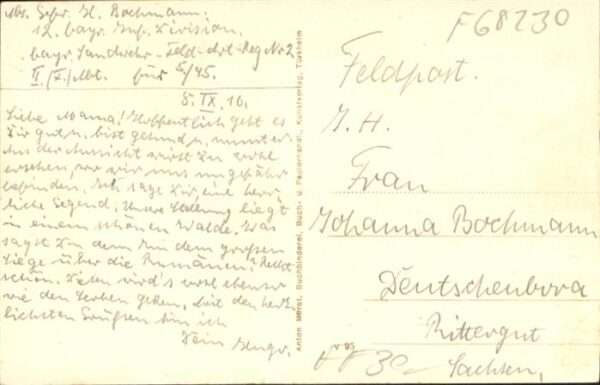 Abs. Gefr. H. Bochmann.
12. bayr. Inf. Division.
bayr. Landwehr-Feld-Art-Reg Nr 2
II. (F.) Abt. für /45.
5. IX. 16.
Liebe Mama! Hoffentlich geht es
Dir gut u. bist gesund u. munter.
Aus der Ansicht wirst Du wohl
ersehen, wo wir uns ungefähr
befinden. Ich sage Dir, eine herr-
liche Gegend. Unsere Stellung liegt
in einem schönen Walde. Was
sagst Du denn zu dem großen
Siege über die Rumänen? Recht
schön. Denen wird's wohl ebenso
wie den Serben gehen. Mit den herz-
lichsten Grüßen bin ich
Dein
F 68230
Feldpost.
I. H.
Frau
Johanna Bochmann
Deutschenbora
Rittergut
Sachsen.
Anton März, Buchbinderei, Buch- u. Papierhandl., Kunstverlag, Türkheim